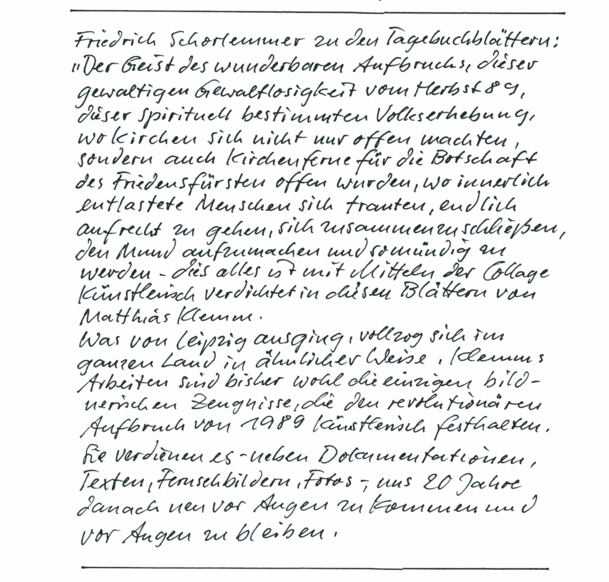 Friedrich Schorlemmer zu den Tagebuchblättern:
"Der Geist des wunderbaren Aufbruchs, dieser
gewaltigen Gewaltlosigkeit vom Herbst 89,
dieser spirituell bestimmten Volkserhebung,
wo Kirchen sich nicht nur offen machten,
sondern auch Kirchenferne für die Botschaft
des Friedensfürsten offen wurden, wo innerlich
entlastete Menschen sich trauten, endlich
aufrecht zu gehen, sich zusammenzuschließen,
den Mund aufzumachen und so mündig zu
werden - dies alles ist mit Mitteln der Collage
künstlerisch verdichtet in diesen Blättern von
Matthias Klemm.
Was von Leipzig ausging, vollzog sich im
ganzen Land in ähnlicher Weise. Klemms
Arbeiten sind bisher wohl die einzigen bild-
nerischen Zeugnisse, die den revolutionären
Aufbruch von 1989 künstlerisch festhalten.
Sie verdienen es - neben Dokumentationen,
Texten, Fernsehbildern, Fotos -, uns 20 Jahre
danach neu vor Augen zu kommen und
vor Augen zu bleiben.